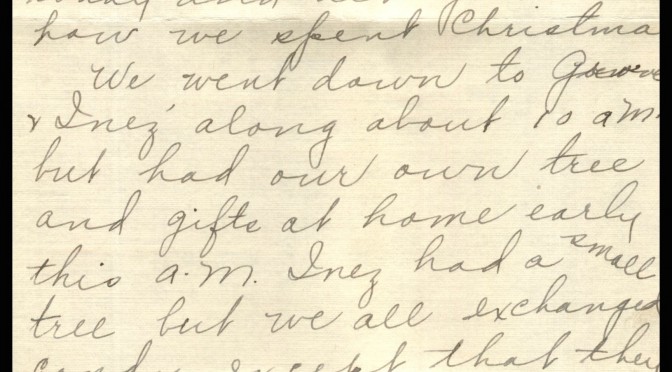 how we spent Christma
We went down to
& Inez' along about 10 a.m.
but had our own tree
and gifts at home early
this a.m. Inez had a small
tree but we all exchanged
candy except that they